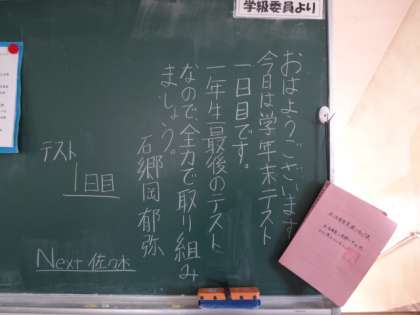 学級委員より
おはようございます
今日は学年末テスト
一日目です。
一年生最後のテスト
なので、全力で取り組み
ましょう。
石郷岡 郁弥
テスト
1日目
Next 佐々木